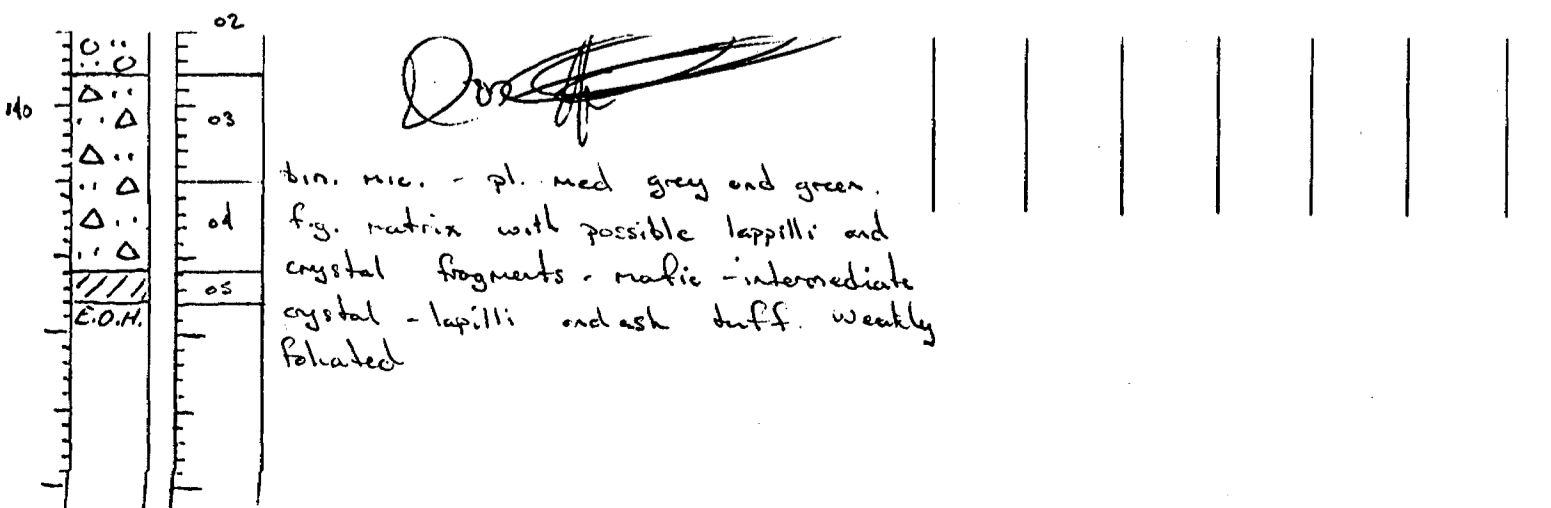 02
140
03
bin. mic. - pl. med grey and green.
04
f.g. matrix with possible lappilli and
crystal fragments - mafic - intermediate
05
E.O.H.
crystal - lapilli and ash tuff. weakly
foliated